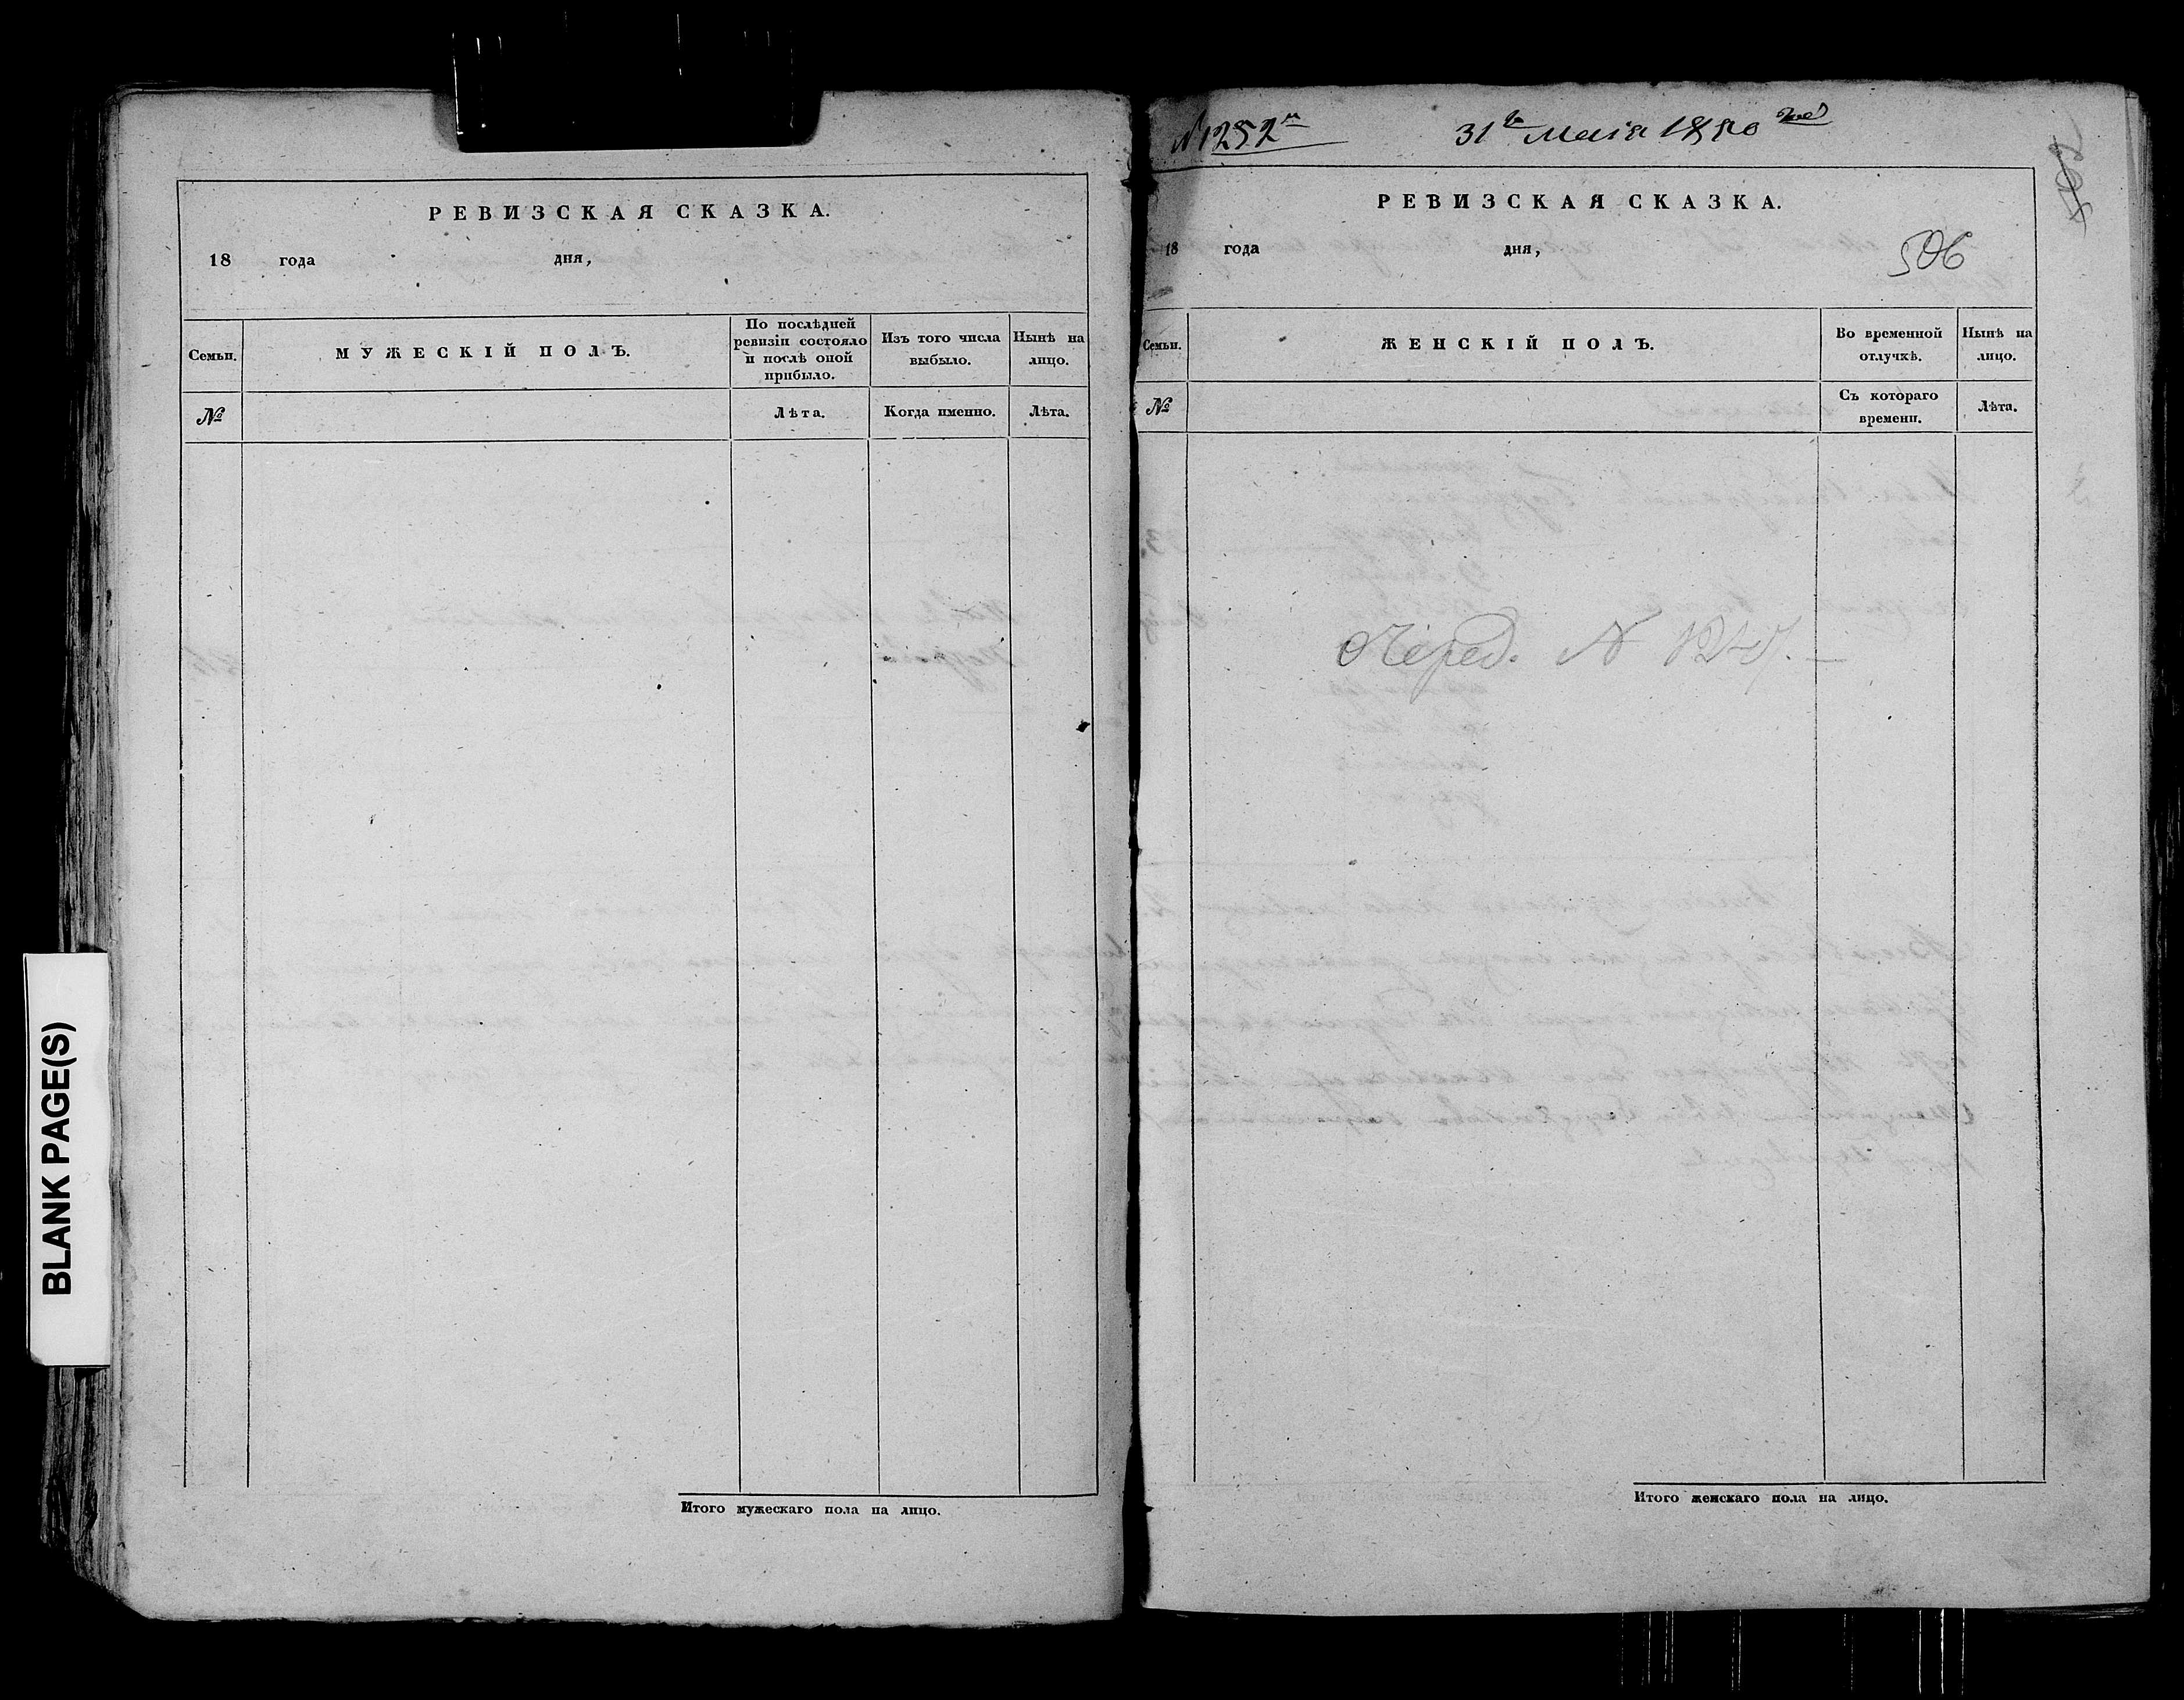 BLANK PAGE(S)
РЕВИЗСКАЯ СКАЗКА.
18 года дня,
Семьи.
МУЖЕСКІЙ ПОЛЪ.
По послѣдней
ревизіи состояло
и послѣ оной
прибыло.
Изъ того числа
выбыло.
Нынѣ на
лицо.
№
Лѣта.
Когда именно.
Лѣта.
Итого мужескаго пола на лицо.
№ 1252
31 Маія 1850 года
502
РЕВИЗСКАЯ СКАЗКА.
18 года дня,
506
Семьи.
ЖЕНСКІЙ ПОЛЪ.
Во временной
отлучкѣ.
Нынѣ на
лицо.
№
Съ котораго
времени.
Лѣта.
Черед. №
Итого женскаго пола на лицо.